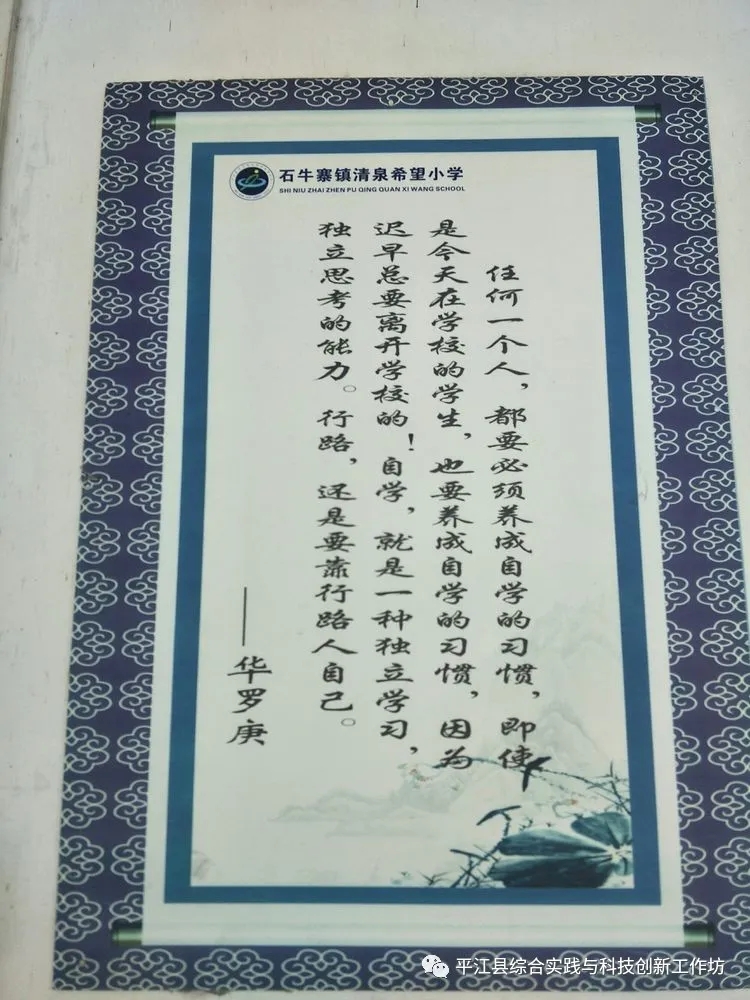 石牛寨镇清泉希望小学
SHI NIU ZHAI ZHEN PU QING QUAN XI WANG SCHOOL
任何一个人，都要必须养成自学的习惯，即使
是今天在学校的学生，也要养成自学的习惯，因为
迟早总要离开学校的！自学，就是一种独立学习，
独立思考的能力。行路，还是要靠行路人自己。
——华罗庚
平江县综合实践与科技创新工作坊